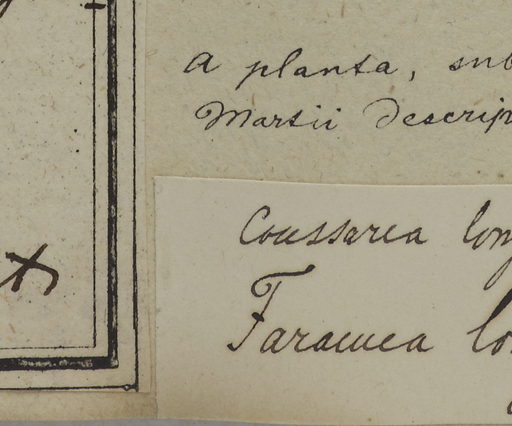 A planta, sub
Martii descrip
Coussarea long
Faramea lo